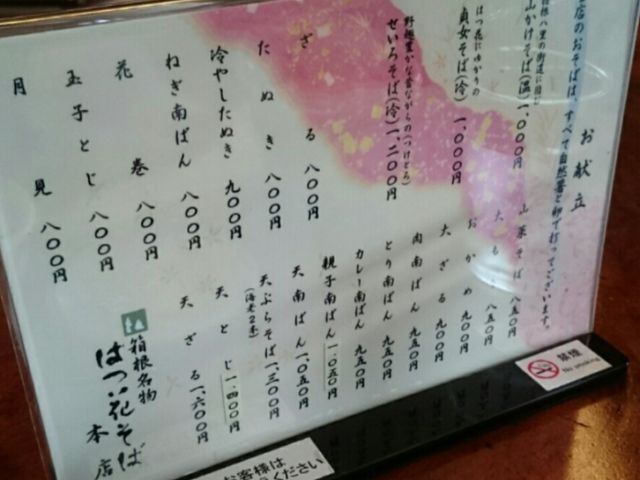 お献立
店のおそばは、すべて自然薯と卵で打ってございます。
山かけそば(温)一、〇〇〇円
はつ花にゆかりの
貞女そば(冷)一、〇〇〇円
野趣豊かな昔ながらの(つけとろ)
せいろそば(冷)一、二〇〇円
ざる 八〇〇円
たぬき 八〇〇円
冷やしたぬき 九〇〇円
ねぎ南ばん 八〇〇円
花巻 八〇〇円
玉子とじ 八〇〇円
月見 八〇〇円
山菜そば 八五〇円
大もり 八五〇円
おかめ 九〇〇円
大ざる 九〇〇円
肉南ばん 九五〇円
とり南ばん 九五〇円
カレー南ばん 九五〇円
親子南ばん 一、〇五〇円
天南ばん 一、〇五〇円
天ぷらそば 一、三〇〇円
(海老2本)
天とじ 一、四〇〇円
天ざる 一、六〇〇円
箱根名物
はつ花そば
本店
禁煙
No smoking
お客様は
ください